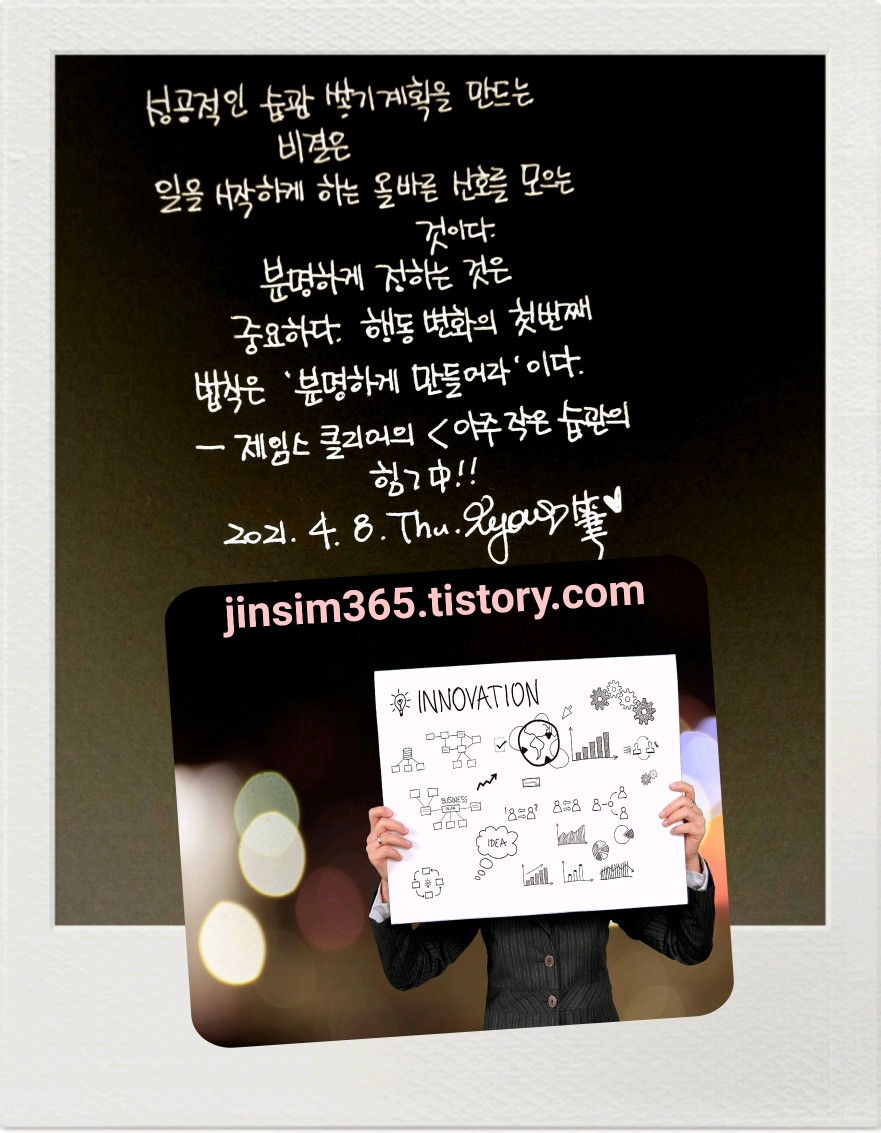 성공적인 습관 쌓기계획을 만드는
비결은
일을 시작하게 하는 올바른 신호를 모으는
것이다.
분명하게 정하는 것은
중요하다. 행동 변화의 첫번째
법칙은 '분명하게 만들어라'이다.
— 제임스 클리어의 <아주 작은 습관의
힘>中!!
2021. 4. 8. Thu.
jinsim365.tistory.com
INNOVATION
BUSINESS
PLAN
!
?
IDEA